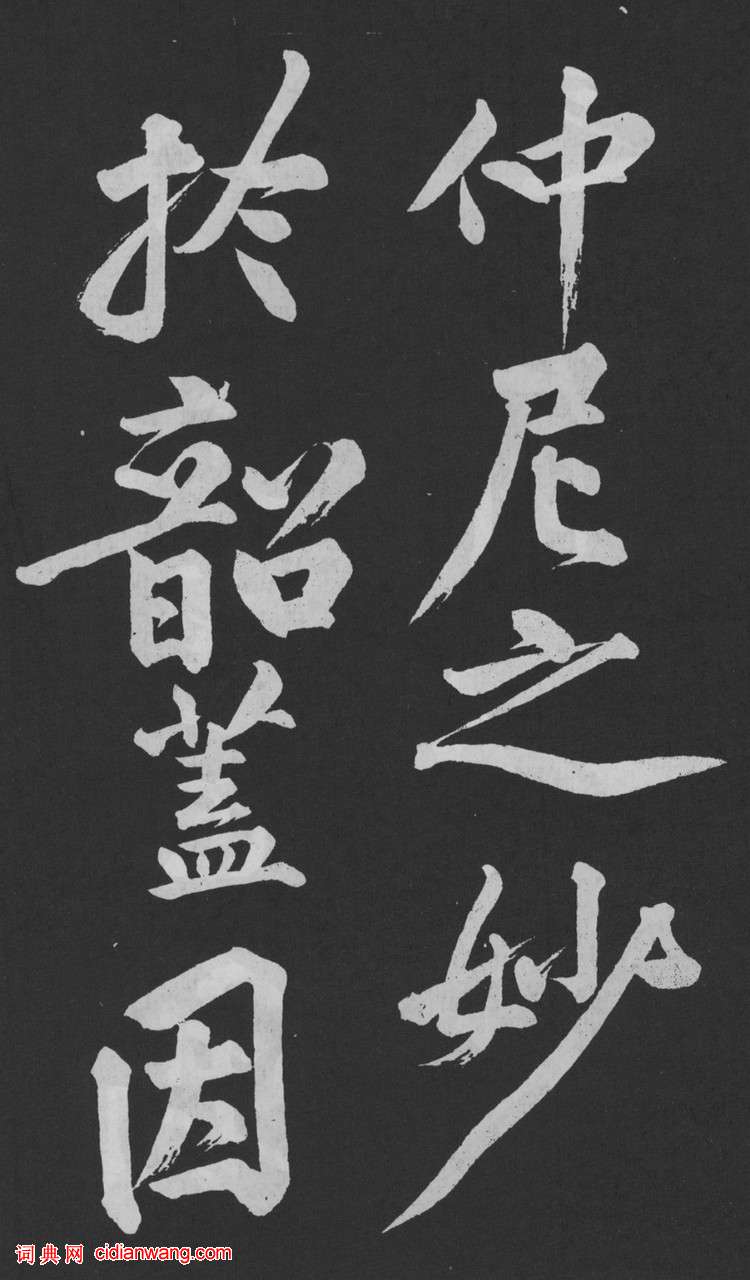 仲尼之妙
於韶蓋因
词典网 cidianwang.com